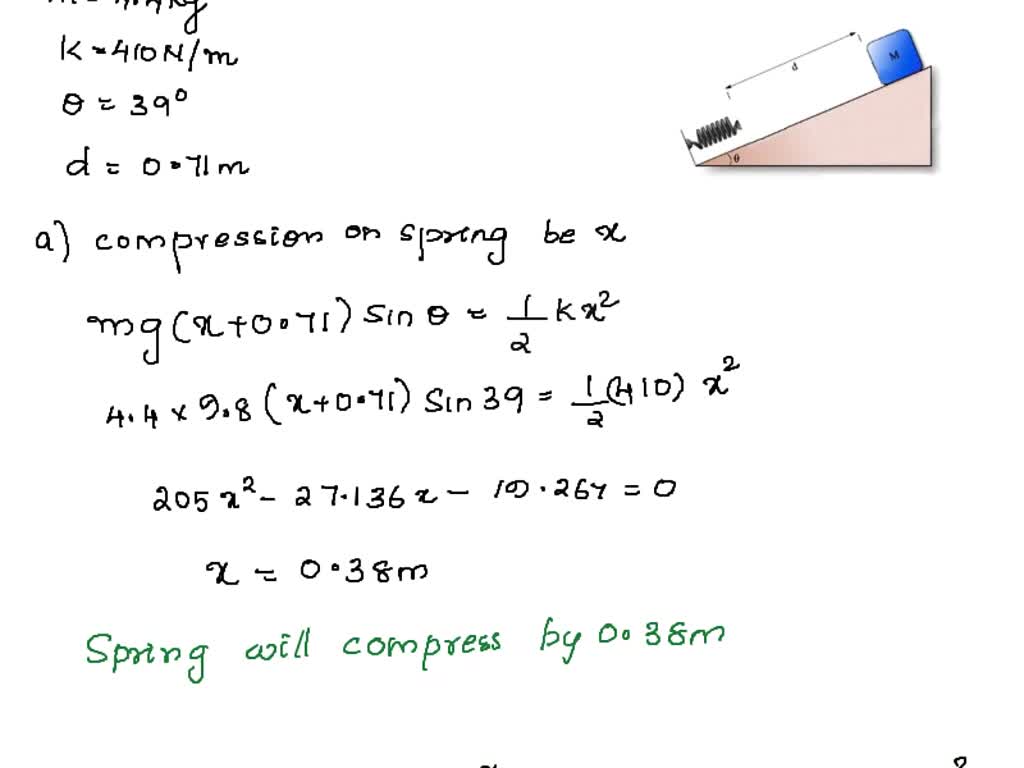 K = 410 N/m
θ = 39°
d = 0.71m
d
M
θ
a) compression on spring be x
mg(x+0.71) sin θ = 1/2 kx²
4.4 x 9.8 (x+0.71) Sin 39 = 1/2 (410) x²
205x² - 27.136x - 19.267 = 0
x = 0.38m
Spring will compress by 0.38m